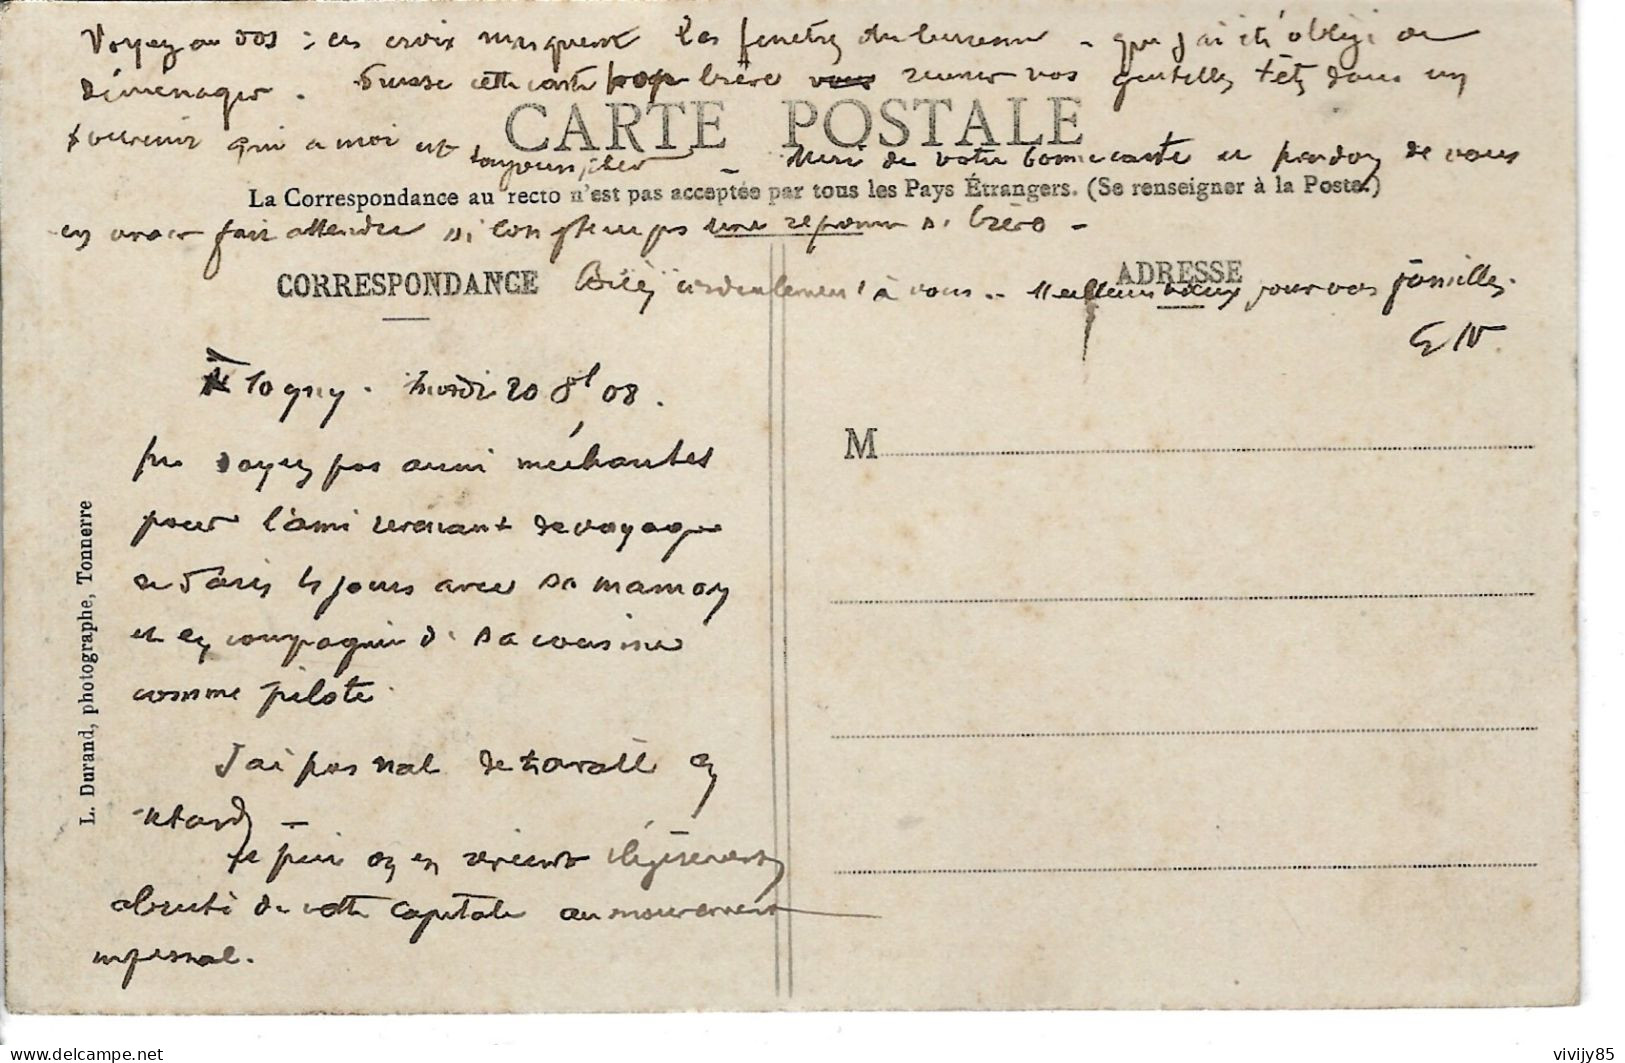 Voyez au dos : ces croix marquent les fenêtres du bureau - que j'ai été obligé de
déménager. Puisse cette carte trop brève reunir vos gentilles têtes dans un
souvenir qui a moi est toujours cher
CARTE POSTALE
Merci de votre bonne carte et pardon de vous
La Correspondance au recto n'est pas acceptée par tous les Pays Étrangers. (Se renseigner à la Poste.)
en avoir fait attendre si longtemps une réponse si brève -
CORRESPONDANCE
ADRESSE
Bien cordialement à vous .. Meilleurs vœux pour vos familles.
E V.
Togny . mardi 20 8bl 08.
soyez pas aussi méchantes
pour l'ami revenant de voyage
de Paris 4 jours avec sa maman
et en compagnie de sa cousine
comme pilote.
J'ai pas mal de travail en
retard -
et puis on en revient légèrement
abruti de cette capitale au mouvement
infernal.
M
L. Durand, photographe, Tonnerre
www.delcampe.net
vivijy85